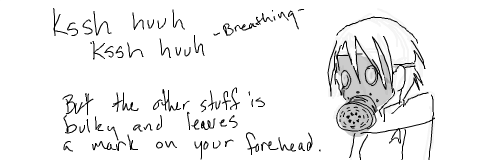 Kssh huuh
-Breathing-
Kssh huuh
But the other stuff is
bulky and leaves
a mark on your forehead.